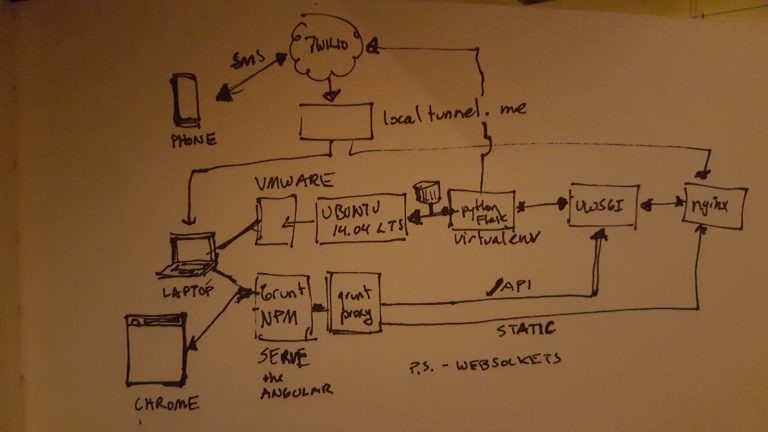 TWILIO
SMS
PHONE
localtunnel.me
VMWARE
UBUNTU
14.04 LTS
python
Flask
virtualenv
UWSGI
nginx
LAPTOP
Grunt
NPM
grunt
proxy
/API
STATIC
SERVE
the
ANGULAR
P.S. - WEBSOCKETS
CHROME